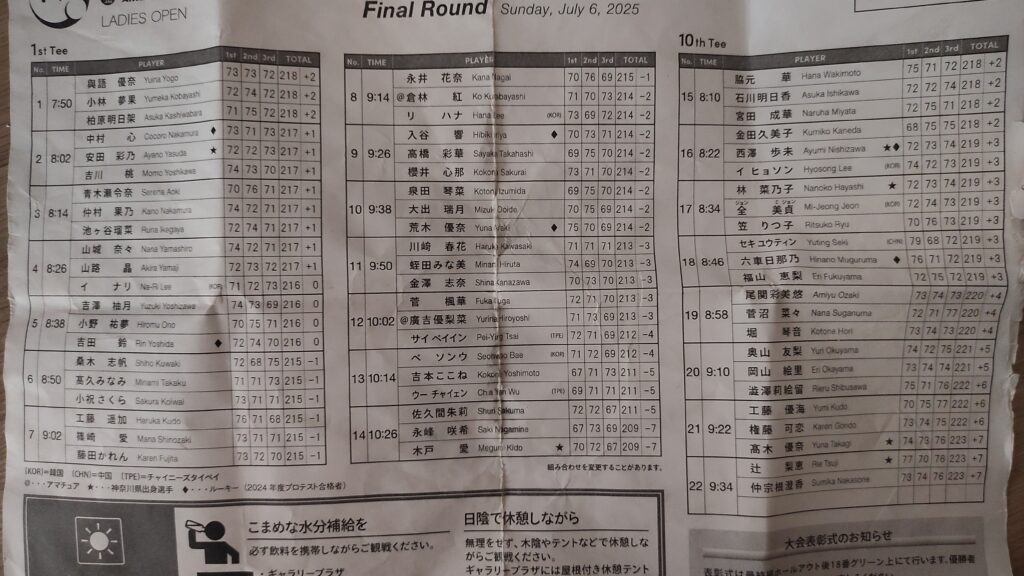 LADIES OPEN
Final Round Sunday, July 6, 2025
1st Tee
No. TIME PLAYER 1st 2nd 3rd TOTAL
與語 優奈 Yuina Yogo 73 73 72 218 +2
1 7:50 小林 夢果 Yumeka Kobayashi 72 74 72 218 +2
柏原明日架 Asuka Kashiwabara 71 75 72 218 +2
中村 心 Cocoro Nakamura ◆ 73 71 73 217 +1
2 8:02 安田 彩乃 Ayano Yasuda ★ 72 72 73 217 +1
吉川 桃 Momo Yoshikawa 74 73 70 217 +1
青木瀬令奈 Serena Aoki 70 76 71 217 +1
3 8:14 仲村 果乃 Kano Nakamura 74 72 71 217 +1
池ヶ谷瑠菜 Runa Ikegaya 72 74 71 217 +1
山城 奈々 Nana Yamashiro 74 72 71 217 +1
4 8:26 山路 晶 Akira Yamaji 72 73 72 217 +1
イ ナリ Na-Ri Lee (KOR) 71 72 73 216 0
吉澤 柚月 Yuzuki Yoshizawa 74 73 69 216 0
5 8:38 小野 祐夢 Hiromu Ono 70 75 71 216 0
吉田 鈴 Rin Yoshida ◆ 72 74 70 216 0
桑木 志帆 Shiho Kuwaki 72 68 75 215 -1
6 8:50 髙久みなみ Minami Takaku 71 71 73 215 -1
小祝さくら Sakura Koiwai 71 71 73 215 -1
工藤 遥加 Haruka Kudo 76 71 68 215 -1
7 9:02 篠崎 愛 Mana Shinozaki 73 71 71 215 -1
藤田かれん Karen Fujita 73 72 70 215 -1
No. TIME PLAYER 1st 2nd 3rd TOTAL
永井 花奈 Kana Nagai 70 76 69 215 -1
8 9:14 @倉林 紅 Ko Kurabayashi 71 70 73 214 -2
リ ハナ Hana Lee (KOR) 73 69 72 214 -2
入谷 響 Hibiki Iriya ◆ 70 73 71 214 -2
9 9:26 高橋 彩華 Sayaka Takahashi 69 75 70 214 -2
櫻井 心那 Kokona Sakurai 73 71 70 214 -2
泉田 琴菜 Kotona Izumida 69 75 70 214 -2
10 9:38 大出 瑞月 Mizuki Ooide 70 75 69 214 -2
荒木 優奈 Yuna Araki ◆ 75 70 69 214 -2
川﨑 春花 Haruka Kawasaki 71 71 71 213 -3
11 9:50 蛭田みな美 Minami Hiruta 74 69 70 213 -3
金澤 志奈 Shina Kanazawa 70 73 70 213 -3
菅 楓華 Fuka Suga 72 71 70 213 -3
12 10:02 @廣吉優梨菜 Yurina Hiroyoshi 71 73 69 213 -3
サイペイイン Pei-Ying Tsai (TPE) 72 72 68 212 -4
ペ ソンウ Seonwoo Bae (KOR) 71 72 69 212 -4
13 10:14 吉本ここね Kokone Yoshimoto 67 73 71 211 -5
ウー チャイェン Chia Yen Wu (TPE) 69 71 71 211 -5
佐久間朱莉 Shuri Sakuma 72 72 67 211 -5
14 10:26 永峰 咲希 Saki Nagamine 67 73 69 209 -7
木戸 愛 Megumi Kido ★ 70 72 67 209 -7
組み合わせを変更することがあります。
10th Tee
No. TIME PLAYER 1st 2nd 3rd TOTAL
脇元 華 Hana Wakimoto 75 71 72 218 +2
15 8:10 石川明日香 Asuka Ishikawa 72 72 74 218 +2
宮田 成華 Naruha Miyata 72 75 71 218 +2
金田久美子 Kumiko Kaneda 68 75 75 218 +2
16 8:22 西澤 歩未 Ayumi Nishizawa ★◆ 72 73 74 219 +3
イ ヒョソン Hyosong Lee (KOR) 74 72 73 219 +3
林 菜乃子 Nanoko Hayashi ★ 72 73 74 219 +3
17 8:34 全 美貞 Mi-Jeong Jeon (KOR) 72 73 74 219 +3
笠 りつ子 Ritsuko Ryu 70 76 73 219 +3
セキ ユウティン Yuting Seki (CHN) 79 68 72 219 +3
18 8:46 六車日那乃 Hinano Muguruma ◆ 76 71 72 219 +3
福山 恵梨 Eri Fukuyama 72 75 72 219 +3
尾関彩美悠 Amiyu Ozaki 73 74 73 220 +4
19 8:58 菅沼 菜々 Nana Suganuma 72 71 77 220 +4
堀 琴音 Kotone Hori 73 74 73 220 +4
奥山 友梨 Yuri Okuyama 74 72 75 221 +5
20 9:10 岡山 絵里 Eri Okayama 73 74 74 221 +5
澁澤莉絵留 Rieru Shibusawa 75 71 76 222 +6
工藤 優海 Yumi Kudo 70 75 77 222 +6
21 9:22 権藤 可恋 Karen Gondo 73 74 75 222 +6
髙木 優奈 Yuna Takagi ★ 74 73 76 223 +7
辻 梨恵 Rie Tsuji ★ 77 70 76 223 +7
22 9:34 仲宗根澄香 Sumika Nakasone 73 74 76 223 +7
(KOR)=韓国 (CHN)=中国 (TPE)=チャイニーズタイペイ
@・・・アマチュア ★・・・神奈川県出身選手 ◆・・・ルーキー(2024年度プロテスト合格者)
こまめな水分補給を
必ず飲料を携帯しながらご観戦ください。
・ギャラリープラザ
日陰で休憩しながら
無理をせず、木陰やテントなどで休憩しな
がらご観戦ください。
ギャラリープラザには屋根付き休憩テント
大会表彰式のお知らせ